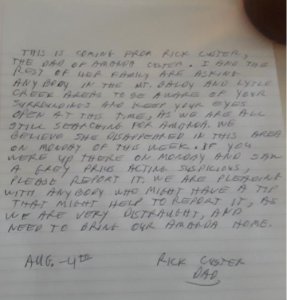 THIS IS COMING FROM RICK CUSTER,
THE DAD OF AMANDA CUSTER. I AND THE
REST OF HER FAMILY ARE ASKING
ANYBODY IN THE MT. BALDY AND LYTLE
CREEK AREAS TO BE AWARE OF YOUR
SURROUNDINGS AND KEEP YOUR EYES
OPEN AT THIS TIME, AS WE ARE ALL
STILL SEARCHING FOR AMANDA. WE
BELIEVE SHE DISAPPEARED IN THIS AREA
ON MONDAY OF THIS WEEK. IF YOU
WERE UP THERE ON MONDAY AND SAW
A GREY PRIUS ACTING SUSPICIOUS,
PLEASE REPORT IT. WE ARE PLEADING
WITH ANYBODY WHO MIGHT HAVE A TIP
THAT MIGHT HELP TO REPORT IT, AS
WE ARE VERY DISTRAUGHT, AND
NEED TO BRING OUR AMANDA HOME.
AUG.-4TH RICK CUSTER
DAD